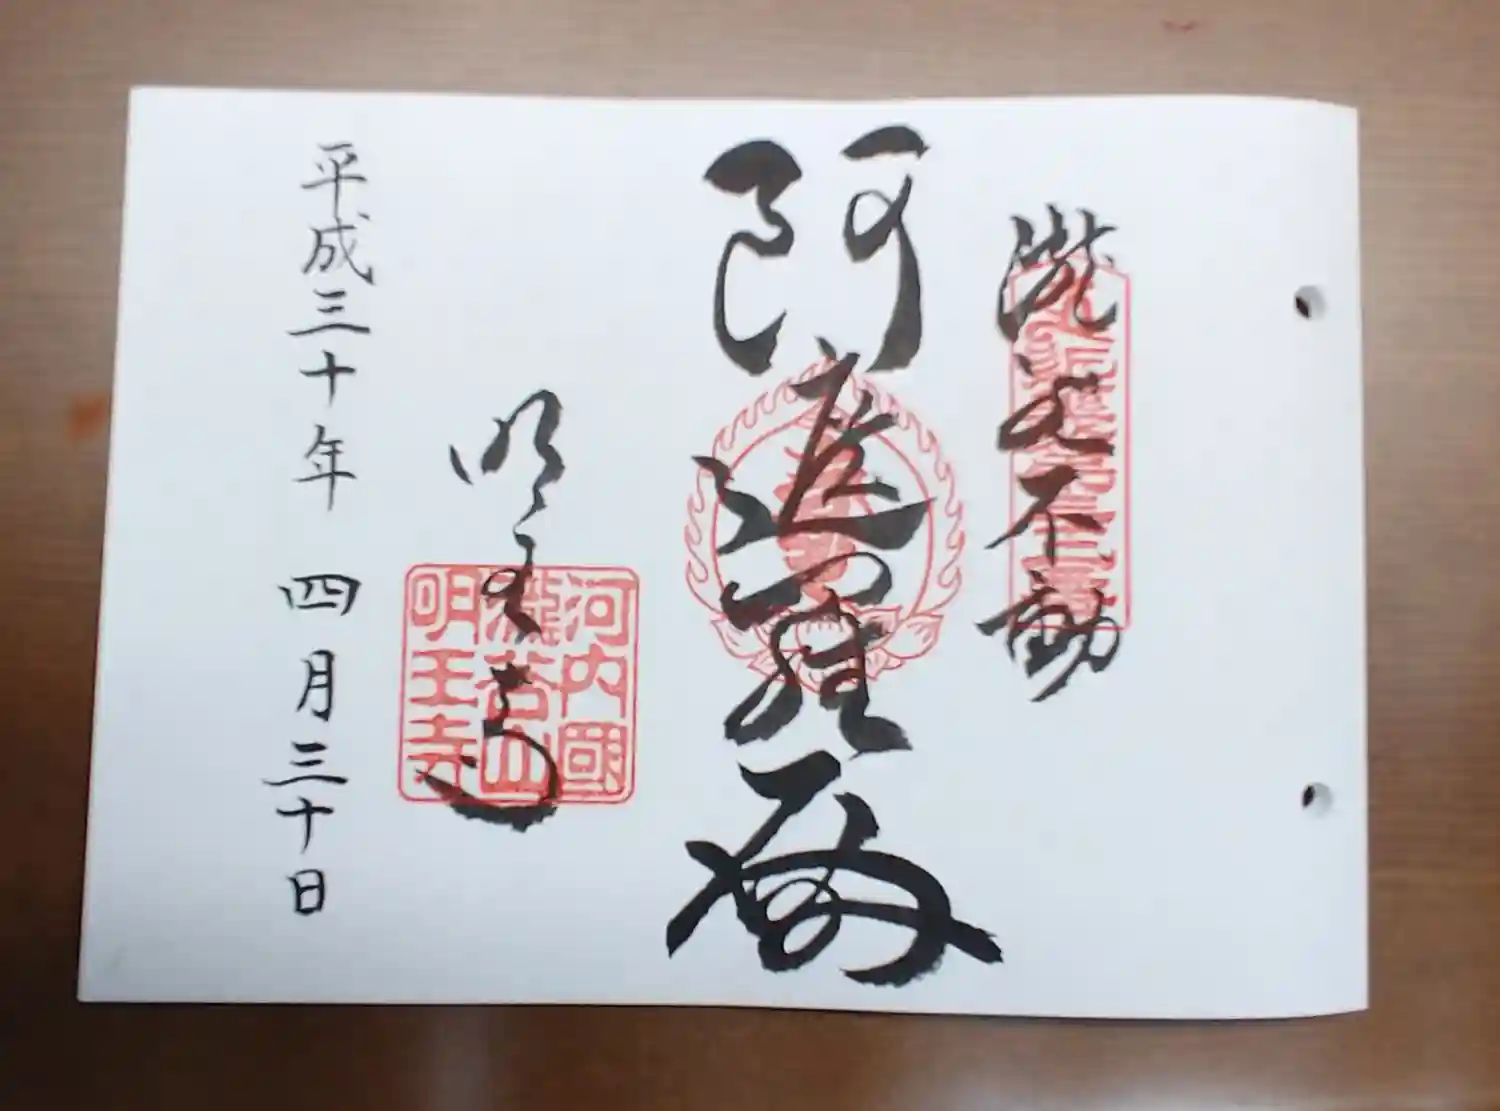 瀧谷不動
阿遮羅
明王寺
河内國
瀧谷山
明王寺
平成三十年 四月三十日